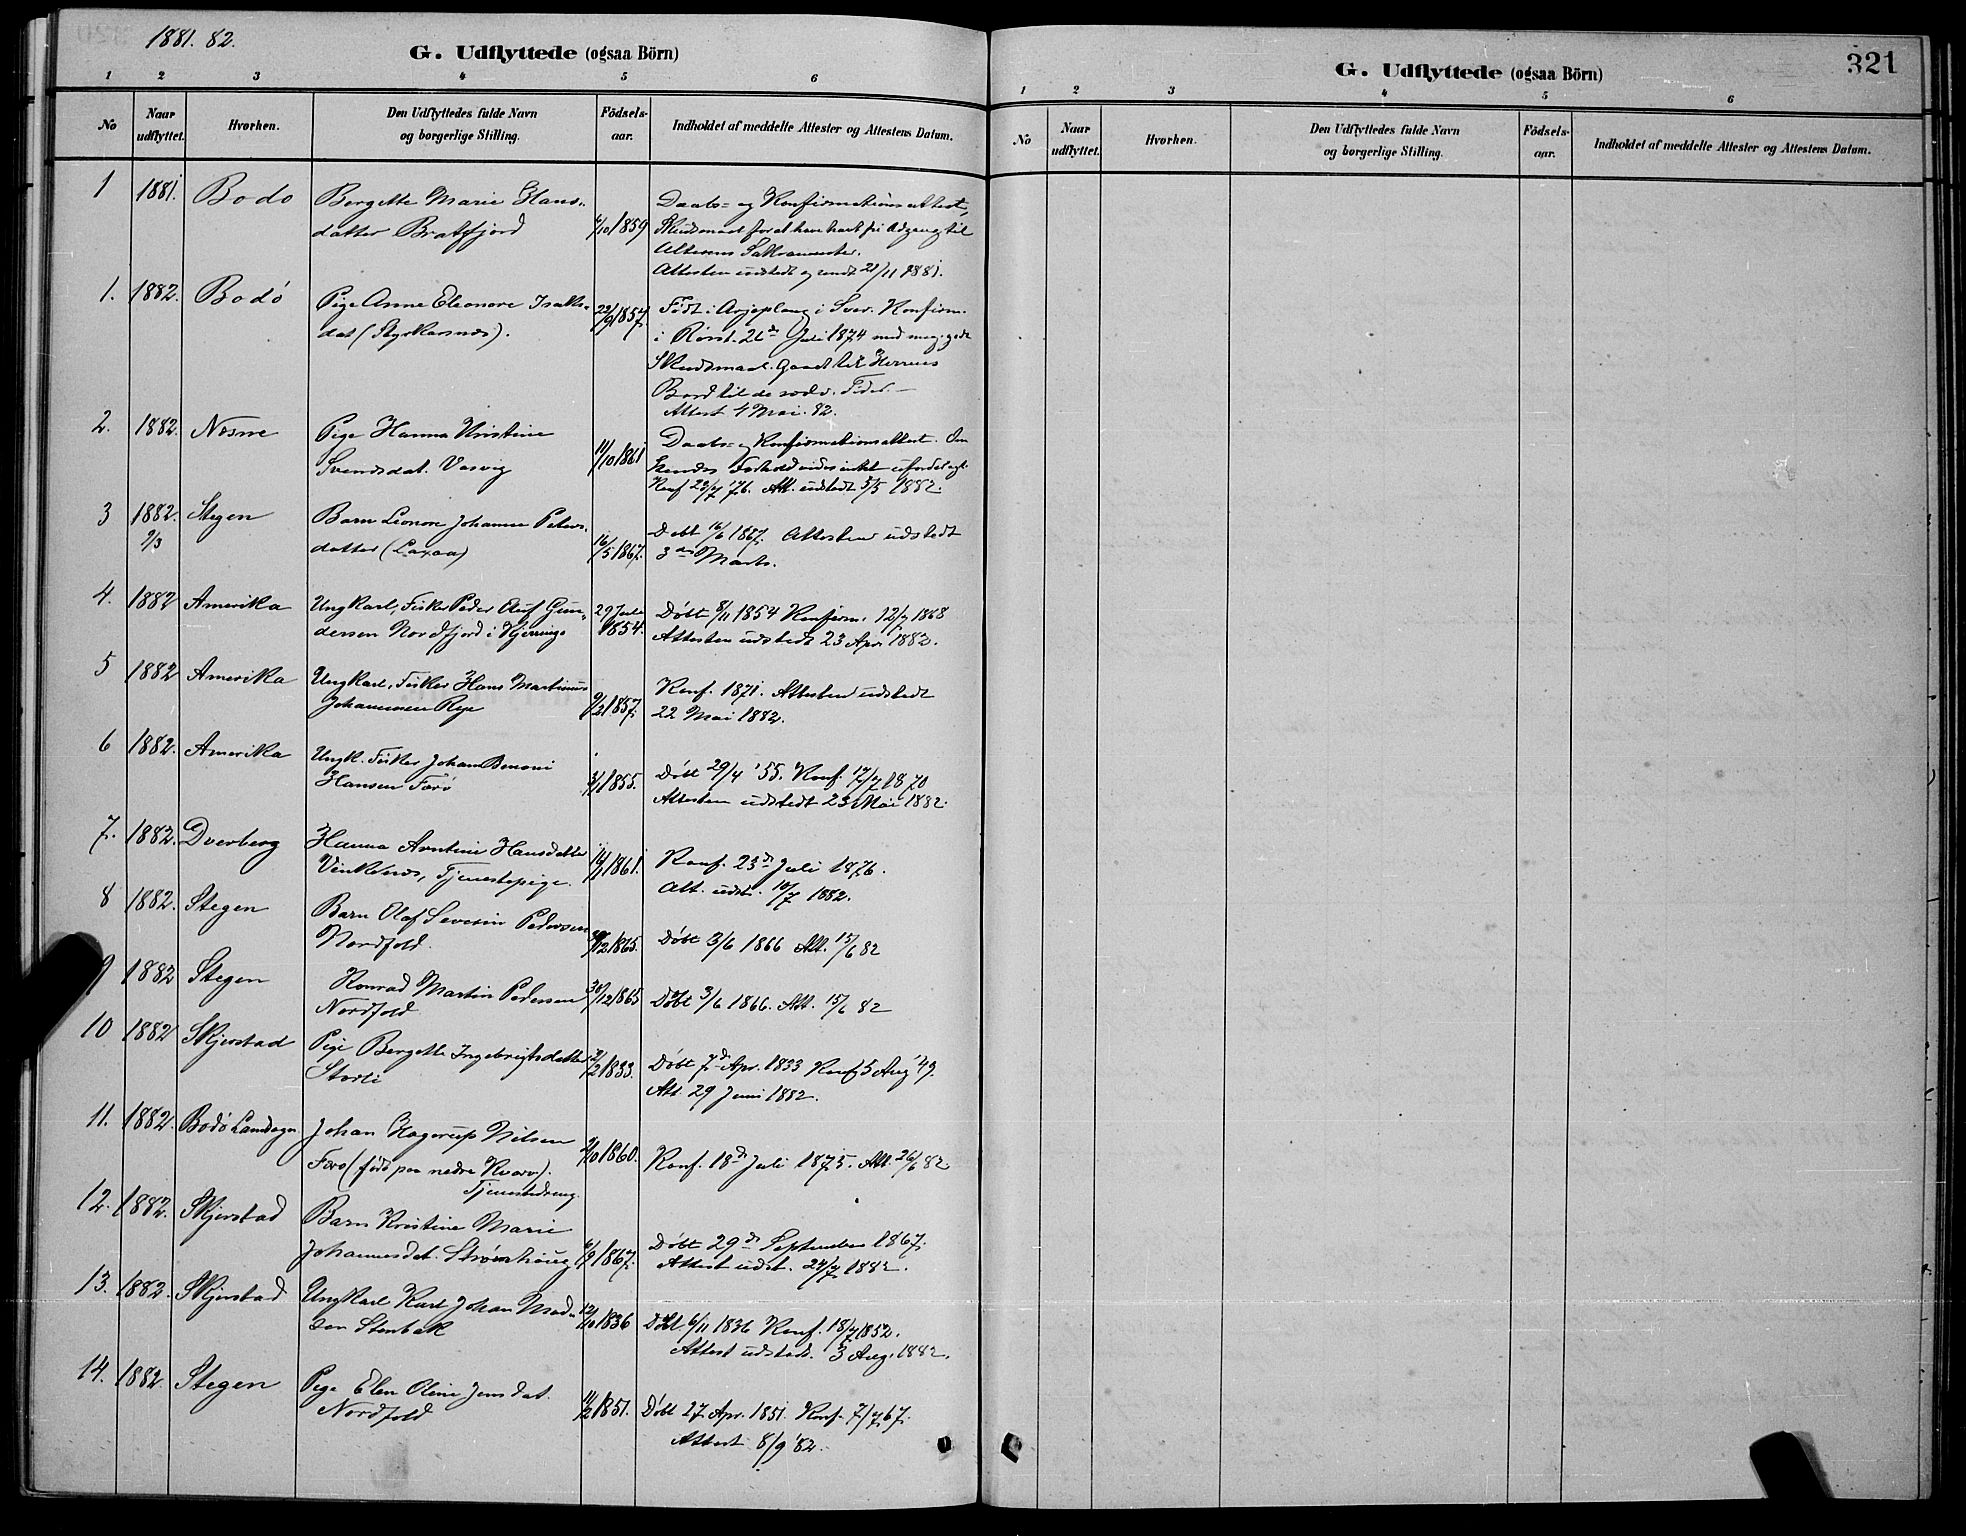 1881. 82.
G. Udflyttede (ogsaa Börn)
1 2 3 4 5 6
No
Naar udflyttet.
Hvorhen.
Den Udflyttedes fulde Navn og borgerlige Stilling.
Födsels-aar.
Indholdet af meddelte Attester og Attestens Datum.
1 1881. Bodø Bergette Marie Hans- 6/10 1859 Daabs= og Konfirmationsattest,
datter Bratfjord Skudsmaal for at have havt fri Adgang til
Alterens Sakramenter.
Attesten udstedt og sendt 21/11 1881.
1. 1882. Bodø Pige Anne Eleonore Isaks- 22/9 1857. Født i Arjeplaug i Sver. Konfirm.
dat (Styrkesnes). i Rørst. 26de Juli 1874 med meg. godt
Skudsmaal. Gaaet til Herrens
Bord til de sedv. Tider. –
Attest 4 Mai. 82.
2. 1882. Nesne Pige Hanna Kristine 11/10 1861 Daabs= og Konfirmationsattest. Om
Svendsdat. Vasvig hendes Forhold vides intet ufordelagt.
Konf 23/7 '76. Att. udstedt 5/5 1882.
3 1882. 2/3 Stegen Barn Leonore Johanna Peters- 16/5 1867. Døbt 16/6 1867. Attesten udstedt
datter (Laxaa) 3die Marts.
4. 1882 Amerika Ungkarl, Fisker Peder Auf Gun- 29 Juli 1854. Døbt 8/11 1854 Konfirm. 12/7 1868
dersen Nordfjord i Kjerring- Attesten udstedt 23 Apr. 1882.
5 1882 Amerika Ungkarl, Fisker Hans Martinus 9/2 1857. Konf. 1871. Attesten udstedt
Johannesen Røse 22 Mai 1882.
6 1882. Amerika Ungk. Fisker Johan Benoni 1855. Døbt 29/4 '55. Konf. 17/7 1870
Hansen Farø Attesten udstedt 23 Mai 1882.
7. 1882. Dverberg Hanna Arntine Hansdatter 1861. Konf. 23de Juli 1876.
Vinkenes, Tjenestepige. Att. udst. 10/7 1882.
8 1882. Stegen Barn Olaf Severin Pedersen 30/12 1865. Døbt 3/6 1866 Att. 15/6 82
Nordfold.
9 1882 Stegen Konrad Martin Pedersen 30/12 1865 Døbt 3/6 1866. Att. 15/6 82
Nordfold
10 1882 Skjerstad Pige Bergette Ingebrigtsdatter 1833. Døbt 7de Apr. 1833 Konf 5 Aug '49.
Storli Att. 29 Juni 1882.
11. 1882. Bodø Landsogn Johan Hagerup Nilsen 1860. Konf. 18de Juli 1875. Att. 26/6 82
Farø (født paa nedre Kvarv).
Tjenestedreng.
12. 1882. Skjerstad Barn Kristine Marie 6/9 1867. Døbt 29de September 1867.
Johannesdat. Strømhaug Attest udst. 24/7 1882.
13. 1882. Skjerstad Ungkarl Karl Johan Mad- 12/10 1836 Døbt 6/11 1836 Konf. 18/7 1852.
sen Stenbak Attest udstedt. 3 Aug. 1882.
14. 1882. Stegen Pige Elen Oline Jensdat. 11/2 1851. Døbt 27 Apr. 1851. Konf. 7/7 67.
Nordfold Attest 8/9 '82.
321
G. Udflyttede (ogsaa Börn)
1 2 3 4 5 6
No
Naar udflyttet.
Hvorhen.
Den Udflyttedes fulde Navn og borgerlige Stilling.
Födsels-aar.
Indholdet af meddelte Attester og Attestens Datum.